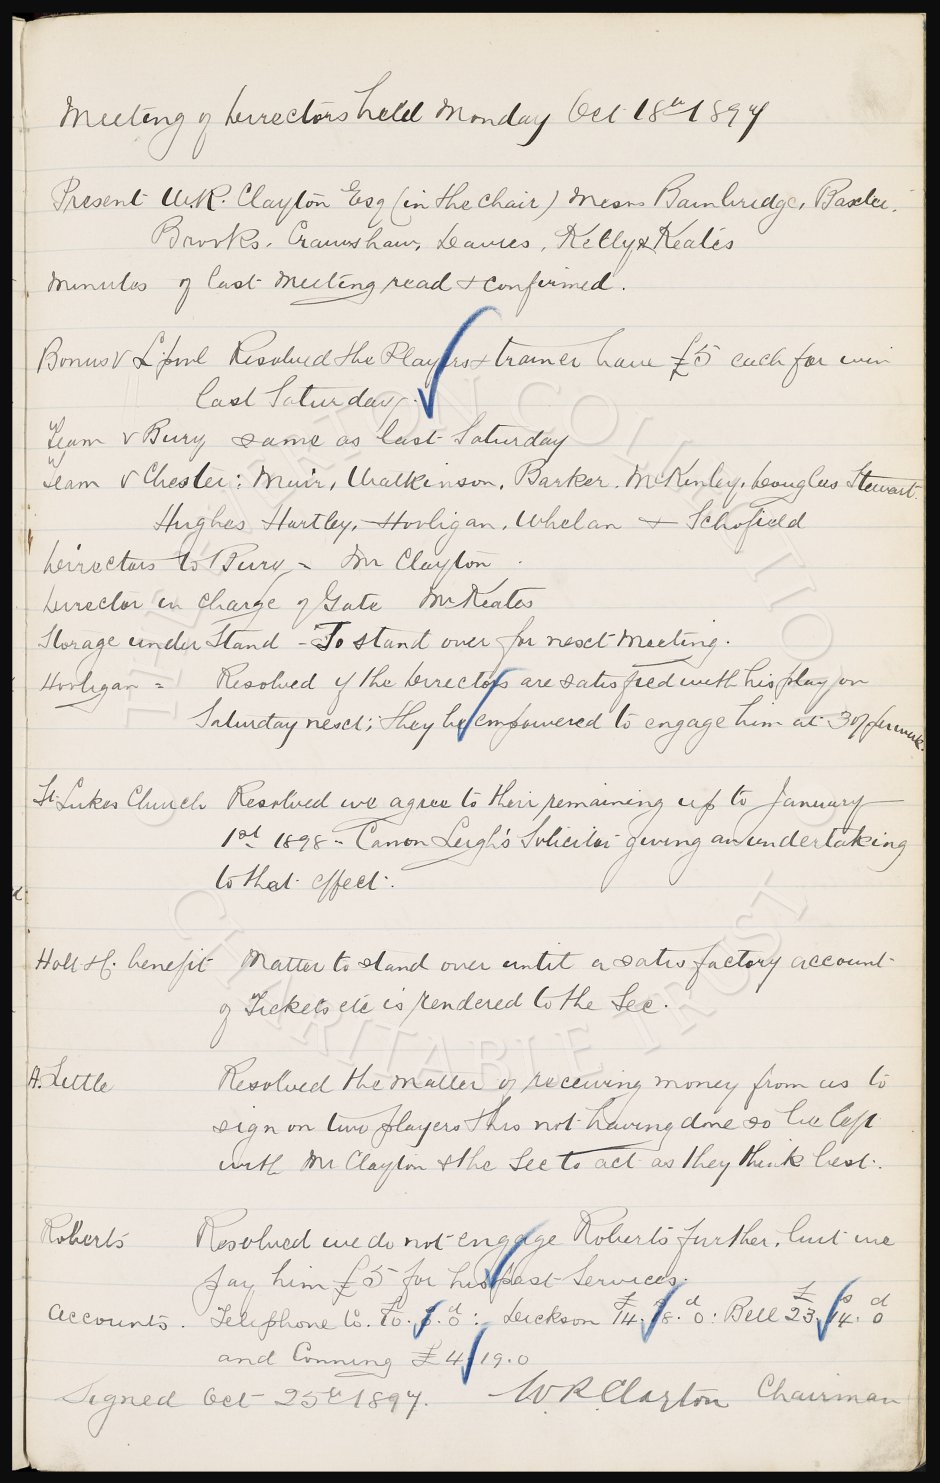 Meeting of Directors held Monday Oct 18th 1897
Present W.R. Clayton Esq (in the chair) Messrs Bainbridge, Baxter,
Brooks, Crawshaw, Davies, Kelly & Keates
Minutes of last meeting read & confirmed.
Bonus V L'pool Resolved the Players & trainer have £5 each for win
last Saturday.
Team v Bury same as last Saturday
Team V Chester: Muir, Watkinson, Barker, McKinley, Douglas Stewart
Hughes Hartley, Hooligan, Whelan & Schofield
Directors to Bury - Mr Clayton
Director in charge of Gate Mr Keates
Storage under Stand - To stand over for next Meeting.
Hooligan = Resolved if the Directors are satisfied with his play on
Saturday next; they be empowered to engage him at 30/ per week.
St Lukes Church Resolved we agree to their remaining up to January
1st 1898 - Canon Leigh's Solicitor giving an undertaking
to that effect.
Holt &c. benefit Matter to stand over until a satisfactory account
of Tickets etc is rendered to the Sec.
A. Little Resolved the matter of receiving money from us to
sign on two players & his not having done so be left
with Mr Clayton & the Sec to act as they think best.
Roberts Resolved we do not engage Roberts further, but we
pay him £5 for his past services.
Accounts. Telephone Co. £10. 0. d0: Dickson £14. 18. d0: Bell £23. s14. d0
and Conning £4.19.0
Signed Oct 25th 1897. W.R. Clayton Chairman
THE EVERTON COLLECTION
CHARITABLE TRUST